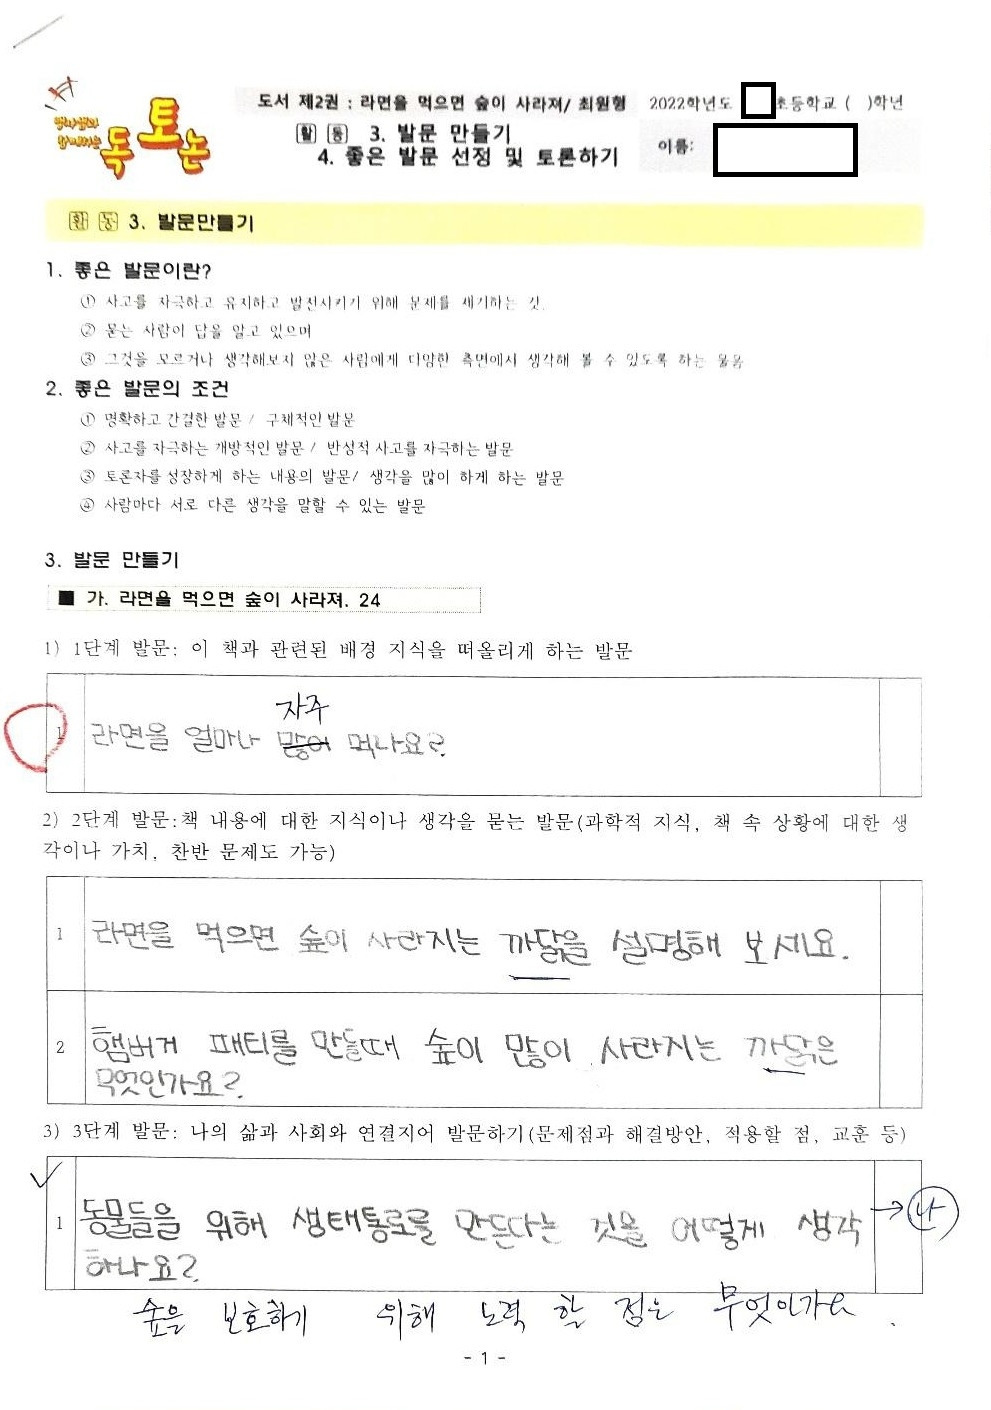 명화샘과
함께하는
독토논
도서 제2권 : 라면을 먹으면 숲이 사라져/ 최원형
2022학년도 초등학교 ( )학년
활동 3. 발문 만들기
4. 좋은 발문 선정 및 토론하기
이름:
활동 3. 발문만들기
1. 좋은 발문이란?
① 사고를 자극하고 유지하고 발전시키기 위해 문제를 제기하는 것.
② 묻는 사람이 답을 알고 있으며
③ 그것을 모르거나 생각해보지 않은 사람에게 다양한 측면에서 생각해 볼 수 있도록 하는 물음
2. 좋은 발문의 조건
① 명확하고 간결한 발문 / 구체적인 발문
② 사고를 자극하는 개방적인 발문 / 반성적 사고를 자극하는 발문
③ 토론자를 성장하게 하는 내용의 발문/ 생각을 많이 하게 하는 발문
④ 사람마다 서로 다른 생각을 말할 수 있는 발문
3. 발문 만들기
■ 가. 라면을 먹으면 숲이 사라져. 24
1) 1단계 발문: 이 책과 관련된 배경 지식을 떠올리게 하는 발문
자주
1 라면을 얼마나 많이 먹나요?
2) 2단계 발문:책 내용에 대한 지식이나 생각을 묻는 발문(과학적 지식, 책 속 상황에 대한 생
각이나 가치, 찬반 문제도 가능)
1 라면을 먹으면 숲이 사라지는 까닭을 설명해 보세요.
2 햄버거 패티를 만들때 숲이 많이 사라지는 까닭은
무엇인가요?
3) 3단계 발문: 나의 삶과 사회와 연결지어 발문하기(문제점과 해결방안, 적용할 점, 교훈 등)
1 동물들을 위해 생태통로를 만든다는 것을 어떻게 생각 → 나
하나요?
숲을 보호하기 위해 노력 할 점은 무엇인가요.
- 1 -